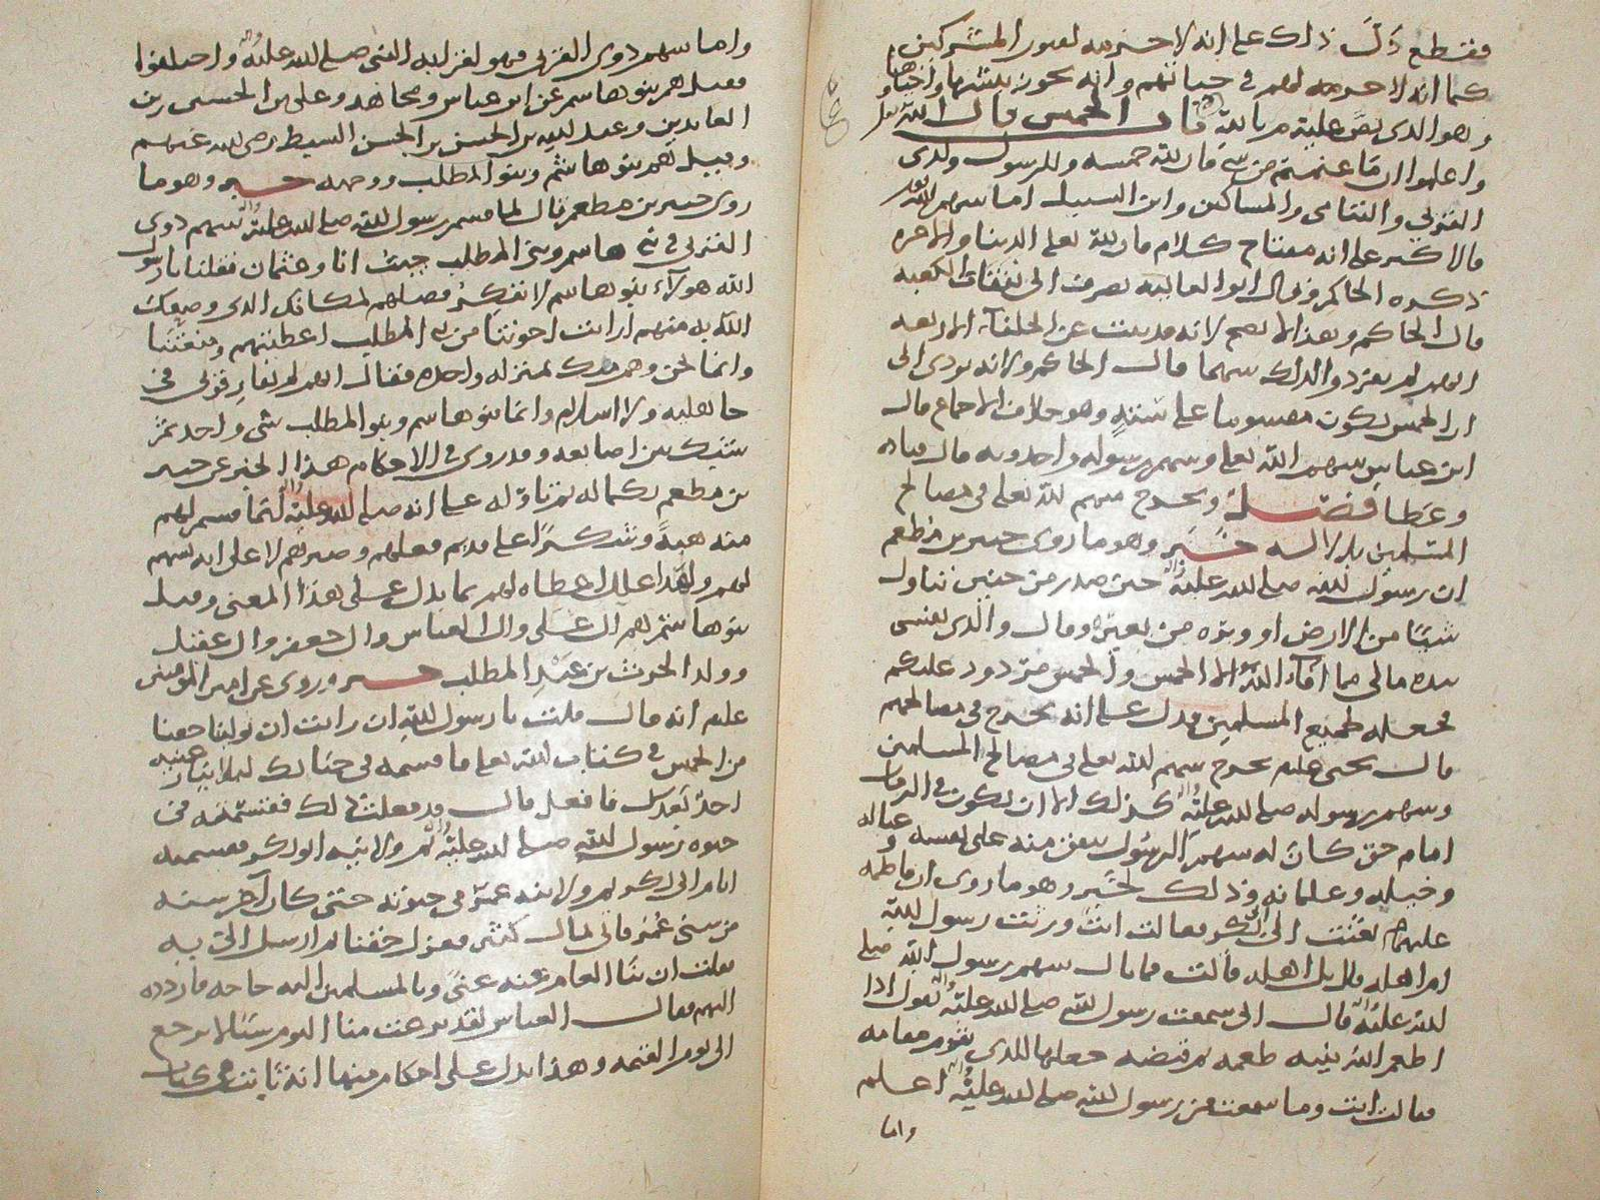 فقطع دَلَّ ذلك على انه لا حرمه لقبور المشركين
كما انه لا حرمه لهم في حياتهم وانه يجوز نبشها
وهو الذي نص عليه م بالله باب الخمس قال الله تعلى
واعلموا ان ما غنمتم من شي فان لله خمسه وللرسول ولذي
القربى واليتامى والمساكين وابن السبيل اما سهم الله
فالاكثر على انه مفتاح كلام فان لله تعلى الدنيا والاخره
ذكره الحاكم وقال ابو العاليه يصرف الى نفقات الكعبه
قال الحاكم وهذا لا يصح لانه قد ثبت عن الخلفاء الاربعه
انهم لم يفردوا لذلك سهما قال الحاكم ولانه يودي الى
ان الخمس يكون مقسوما على ستة وهو خلاف الاجماع قال
ابن عباس سهم الله تعلى وسهم رسوله واحد وبه قال قتاده
وعطا فصل ويخرج سهم لله تعلى في مصالح
المسلمين بدلاله خبر وهو ما روى جبير بن مطعم
ان رسول لله صلى لله عليه حين صدر من حنين تناول
شيئا من الارض او وبره من بعير وقال والذي نفسي
بيده مالي مما افاء الله الا الخمس والخمس مردود عليكم
فجعله لجميع المسلمين فدل على انه يخرج في مصالحهم
قال يحيى علم يخرج سهم لله تعلى في مصالح المسلمين
وسهم رسوله صلى لله عليه كذلك الا ان يكون في الزمان
امام حق كان له سهم الرسول ينفق منه على نفسه وعياله
وخيله وغلمانه وذلك لخبر وهو ما روى ان فاطمه
عليها بعثت الى ابي بكر فقالت انت ورثت رسول لله
ام اهله قال بل اهله قالت فما بال سهم رسول الله صلى
لله عليه قال اني سمعت رسول لله صلى لله عليه يقول اذا
اطعم الله نبيه طعمه ثم قبضه جعلها للذي يقوم مقامه
فقالت انت وما سمعت من رسول لله صلى لله عليه اعلم
واما
واما سهم ذوي القربى فهو لقرابه النبي صلى لله عليه واختلفوا
فقيل هم بنو هاشم عن ابن عباس ومجاهد وعلي بن الحسين زين
العابدين وعبد لله بن الحسن بن الحسن السبط رضي لله عنهم
وقيل هم بنو هاشم وبنو المطلب ووجهه خبر وهو ما
روى جبير بن مطعم قال لما قسم رسول لله صلى لله عليه سهم ذوي
القربى في بني هاشم وبني المطلب جيت انا وعثمان فقلنا يا رسول
الله هولاء بنو هاشم لا ننكر فضلهم لمكانك الذي وضعك
الله به منهم ارايت اخوتنا من بني المطلب اعطيتهم ومنعتنا
وانما نحن وهم منك بمنزله واحده فقال انهم لم يفارقوني في
جاهليه ولا اسلام وانما بنو هاشم وبنو المطلب شي واحد ثم
شبك بين اصابعه وقد روى في الاحكام هذا الخبر عن جبير
بن مطعم بكماله ثم تاوله على انه صلى لله عليه انما قسم لهم
منه هبةً وشكرًا على قديم فعلهم وصبرهم لا على انه سهم
لهم ولهذا علل اعطاه لهم بما يدل على هذا المعنى وقيل
بنو هاشم هم ال علي وال العباس وال جعفر وال عقيل
وولد الحرث بن عبد المطلب خبر وروى عن امير المومنين
علم انه قال قلت يا رسول لله ان رايت ان تولينا حقنا
من الخمس في كتاب لله تعلى فاقسمه في حياتك لئلا ينازعنيه
احد بعدك فافعل قال قد فعلت ذلك فقسمته في
حيوه رسول لله صلى لله عليه ثم ولانيه ابو بكر فقسمته
ايام ابي بكر ثم ولانيه عمر في حيوته حتى كان اخر سنه
من سني عمر فاتى لمال كثير فعزل حقنا ثم ارسل الي به
فقلت ان بنا العام عنه غنى وبالمسلمين اليه حاجه فاردده
اليهم فقال العباس لقد نزعت منا اليوم شيئا لا يرجع
الى يوم القيمه وهذا يدل على احكام منها انه ثابت في كتاب